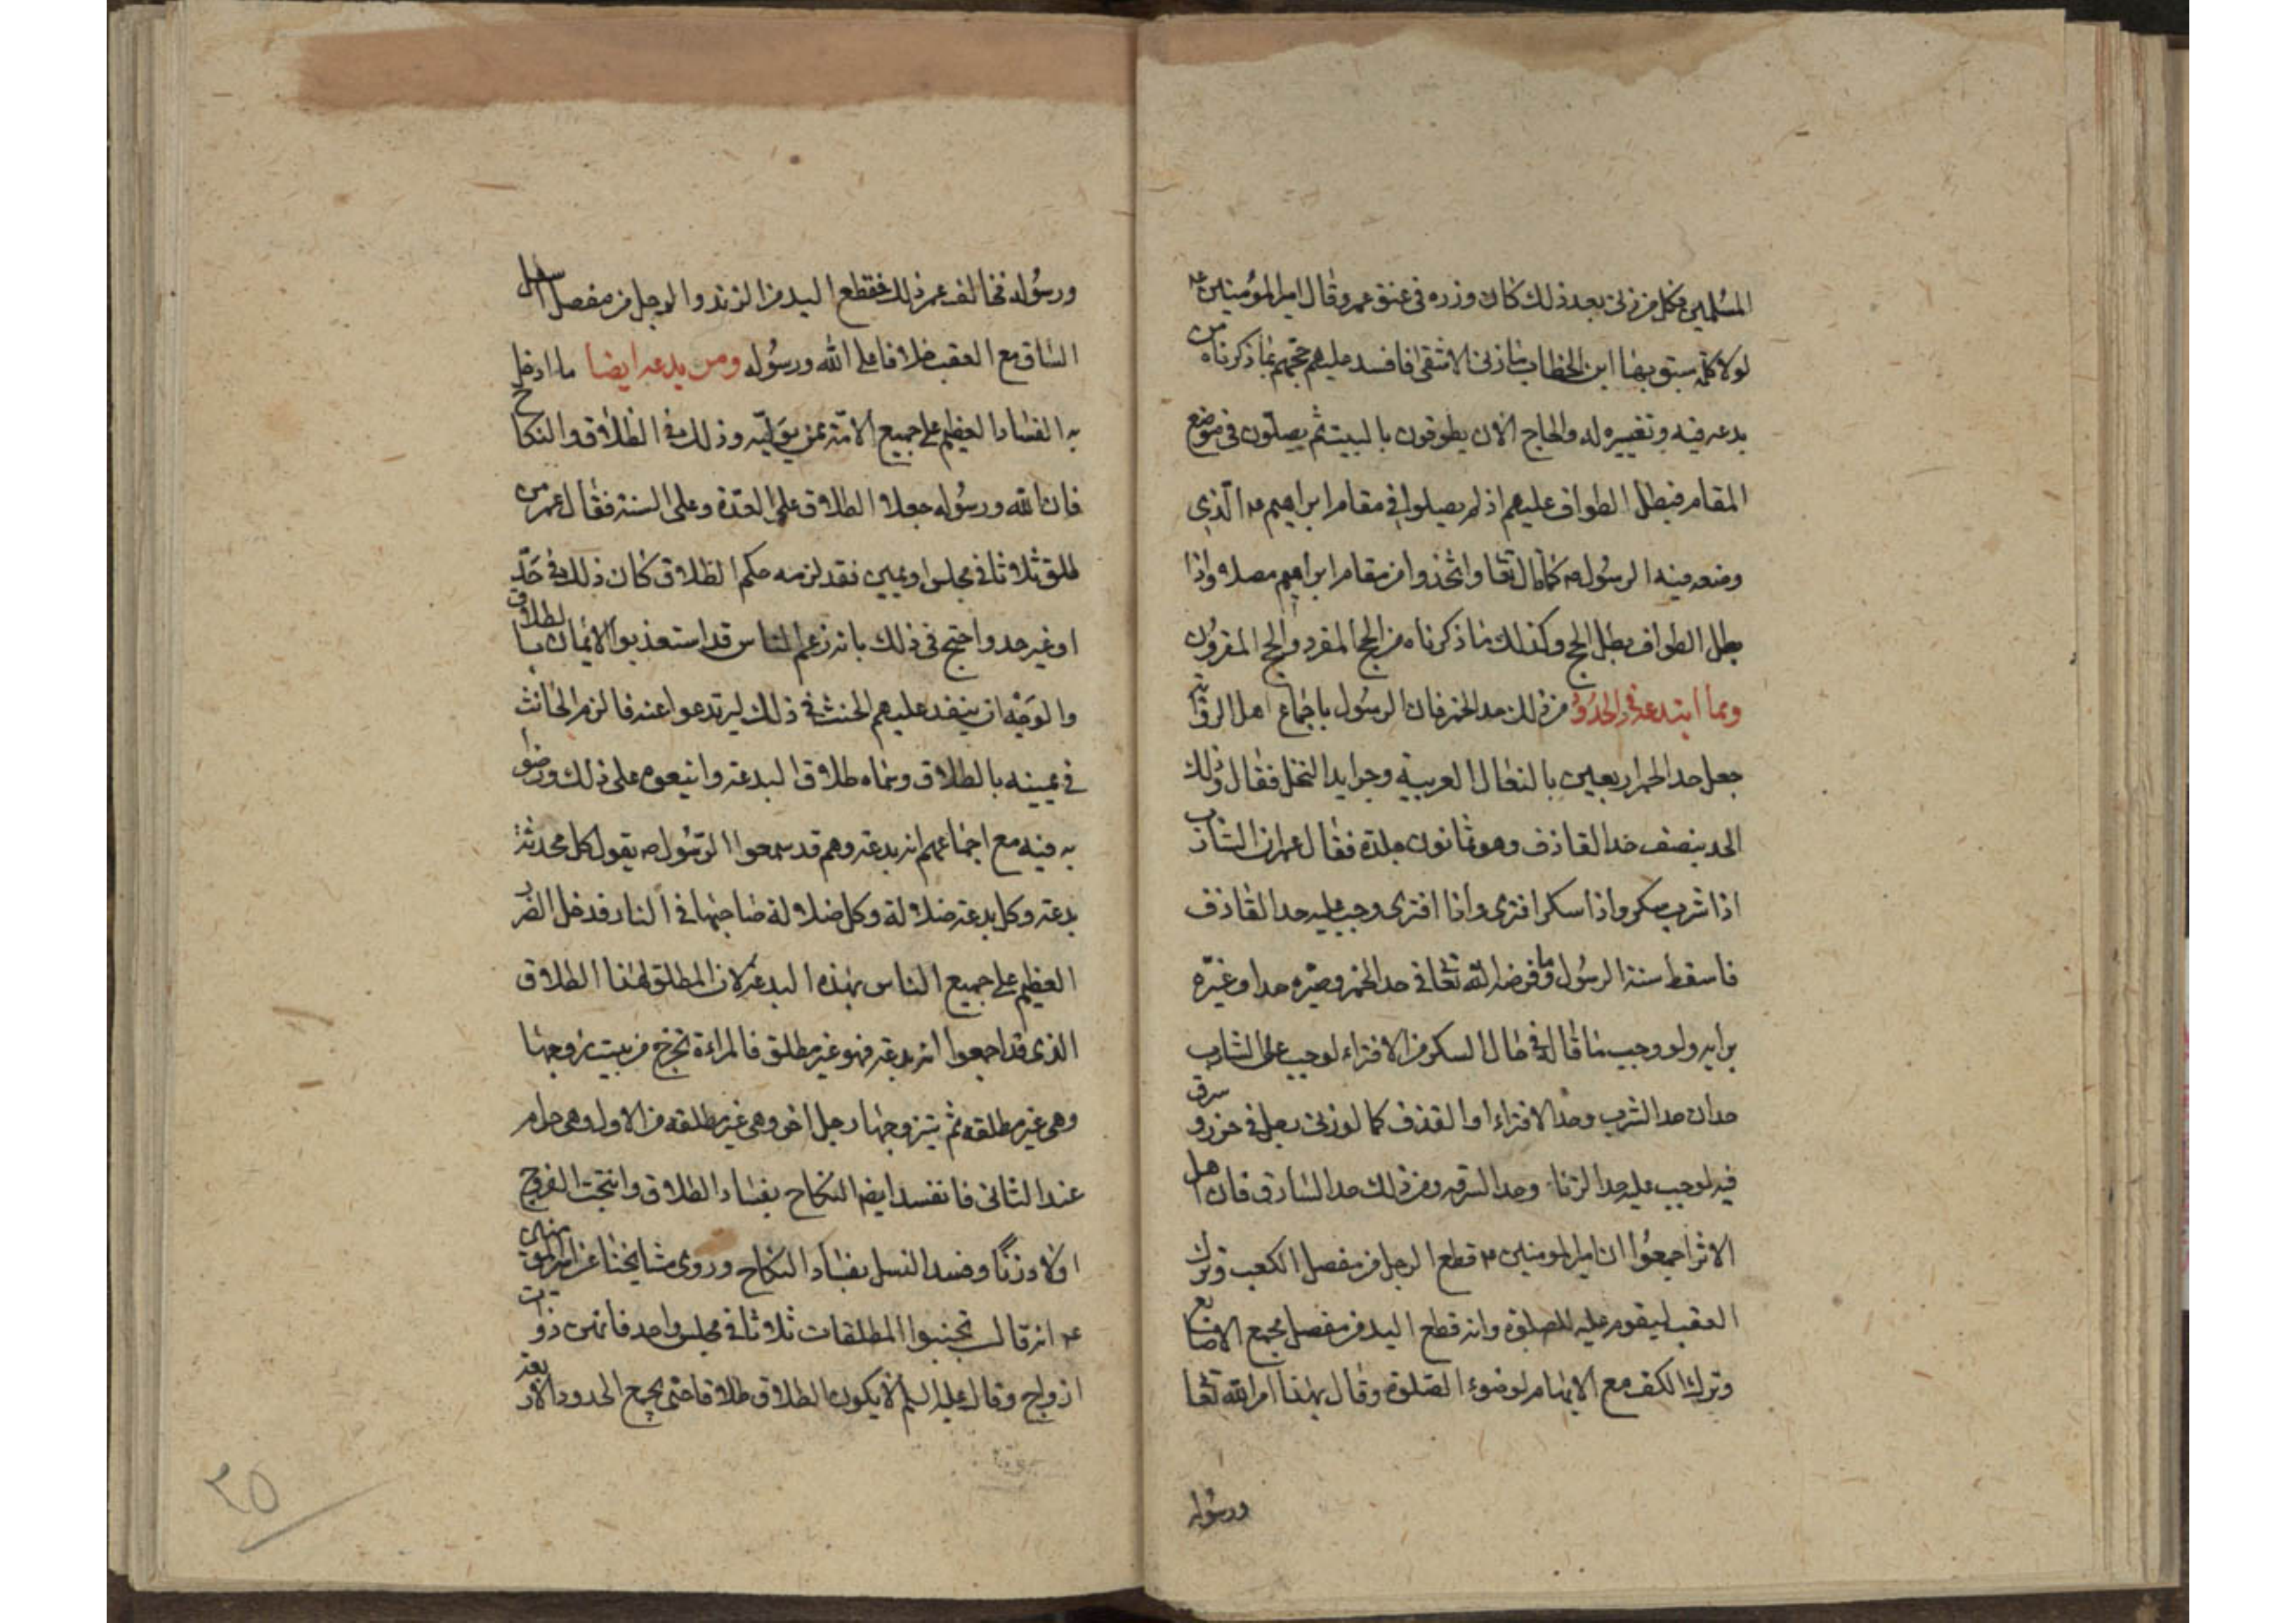 المسلمين فكل من زنى بعد ذلك كان وزره فى عنق عمر وقال امير المؤمنين ع
لولا كلمة سبق بها ابن الخطاب ما زنى الا شقى فافسد عليهم حجهم بما ذكرناه من
بدعه فيه وتغييره له والحاج الان يطوفون بالبيت ثم يصلون فى موضع
المقام فبطل الطواف عليهم اذ لم يصلوا فى مقام ابراهيم ع الذى
وضعه فيه الرسول ص كما قال تعا واتخذوا من مقام ابراهيم مصلى واذا
بطل الطواف بطل الحج وكذلك ما ذكرناه من الحج المفرد والحج المقرون
ومما ابتدعه فى الحدود من ذلك حد الخمر فان الرسول باجماع اهل الرواية
جعل حد الخمر اربعين بالنعال العربية وجرايد النخل فقال ذلك
الحد بنصف حد القاذف وهو ثمانون جلدة فقال عمر ان الشارب
اذا شرب سكر واذا سكر افترى واذا افترى وجب عليه حد القاذف
فاسقط سنة الرسول وما فرضه الله تعا فى حد الخمر وصيره حدا وغيره
برايه ولو وجب ما قاله فى حال السكر من الافتراء لوجب على الشارب
حدان حد الشرب وحد الافتراء او القذف كما لو زنى رجل فى خمره وسرق
فيه لوجب عليه حد الزنا وحد السرقه ومن ذلك حد السارق فان اهل
الاثر اجمعوا ان امير المومنين ع قطع الرجل من مفصل الكعب وترك
العقب ليقوم عليه للصلوة وانه قطع اليد من مفصل مجمع الاصابع
وترك الكف مع الابهام لوضوء الصلوة وقال بهذا امر الله تعا
ورسوله
ورسوله فخالف عمر ذلك فقطع اليد من الزند والرجل من مفصل اسفل
الساق مع العقب خلافا على الله ورسوله ومن بدعه ايضا ما ادخل
به الفساد العظيم على جميع الامة ممن يتوليه وذلك فى الطلاق والنكاح
فان الله ورسوله جعلا الطلاق على العدة وعلى السنة فقال عمر من
طلق ثلاثا فى مجلس او يمين فقد لزمه حكم الطلاق كان ذلك فى حد
او غير حد واحتج فى ذلك بانه زعم الناس قد استعذبوا الايمان بالطلاق
والوجه ان ينفذ عليهم الحنث فى ذلك ليرتدعوا عنه فالزم الحانث
فى يمينه بالطلاق وسماه طلاق البدعة واتبعوه على ذلك ورضوا
به فيه مع اجماعهم انه بدعة وهم قد سمعوا الرسول ص يقول كل محدثة
بدعة وكل بدعة ضلالة وكل ضلالة صاحبها فى النار فدخل الضرر
العظيم على جميع الناس بهذه البدعة لان المطلق لهذا الطلاق
الذى قد اجمعوا انه بدعة فهو غير مطلق فالمراءة تخرج من بيت زوجها
وهى غير مطلقه ثم يتزوجها رجل اخر وهى غير مطلقه من الاول وهى حرام
عند الثانى فانفسد ايضا النكاح بفساد الطلاق وانتجت الفروج
اولاد زنًا وفسد النسل بفساد النكاح وروى مشايخنا عن امير المومنين
ع انه قال تجنبوا المطلقات ثلاثا فى مجلس واحد فانهن ذوات
ازواج وقال عليه السلم لا يكون الطلاق طلاقا حتى يجمع الحدود الاربعة
٢٥